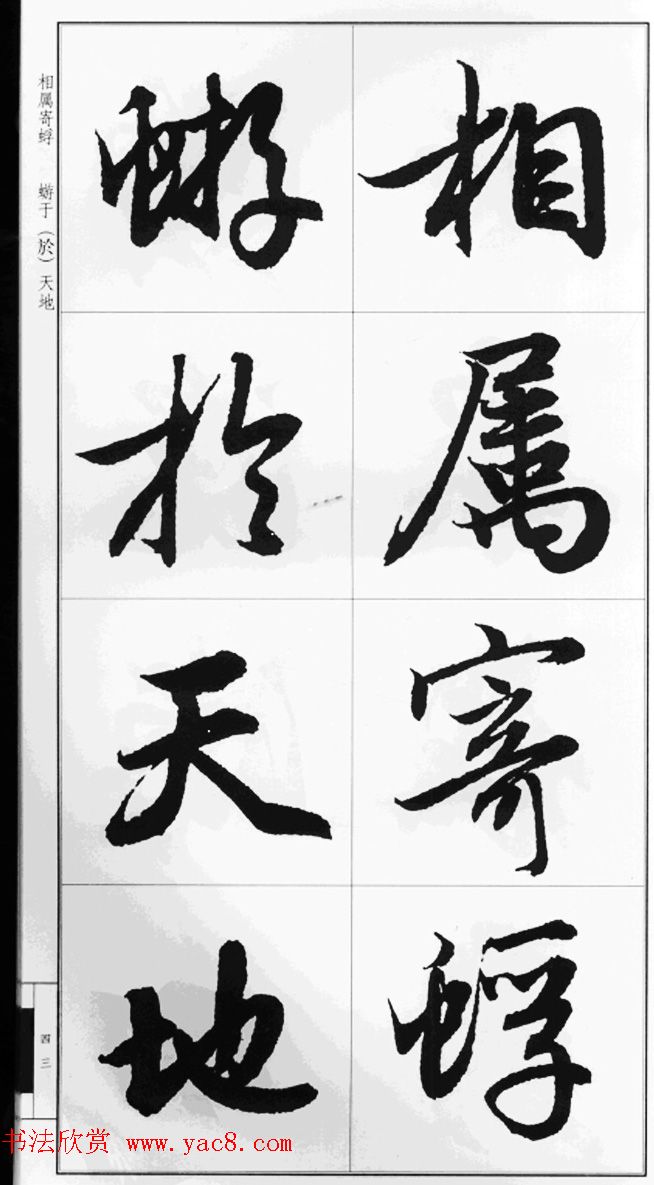 相属寄蜉
蝣於天地
相属寄蜉 蝣于（於）天地
四三
书法欣赏 www.yac8.com